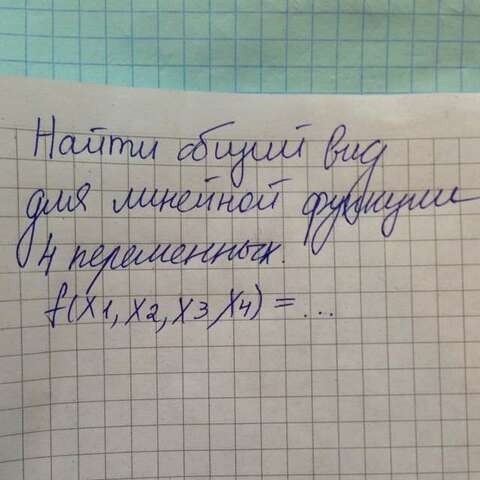 Найти общий вид
для линейной функции
4 переменных.
f(x1, x2, x3 x4) = ...